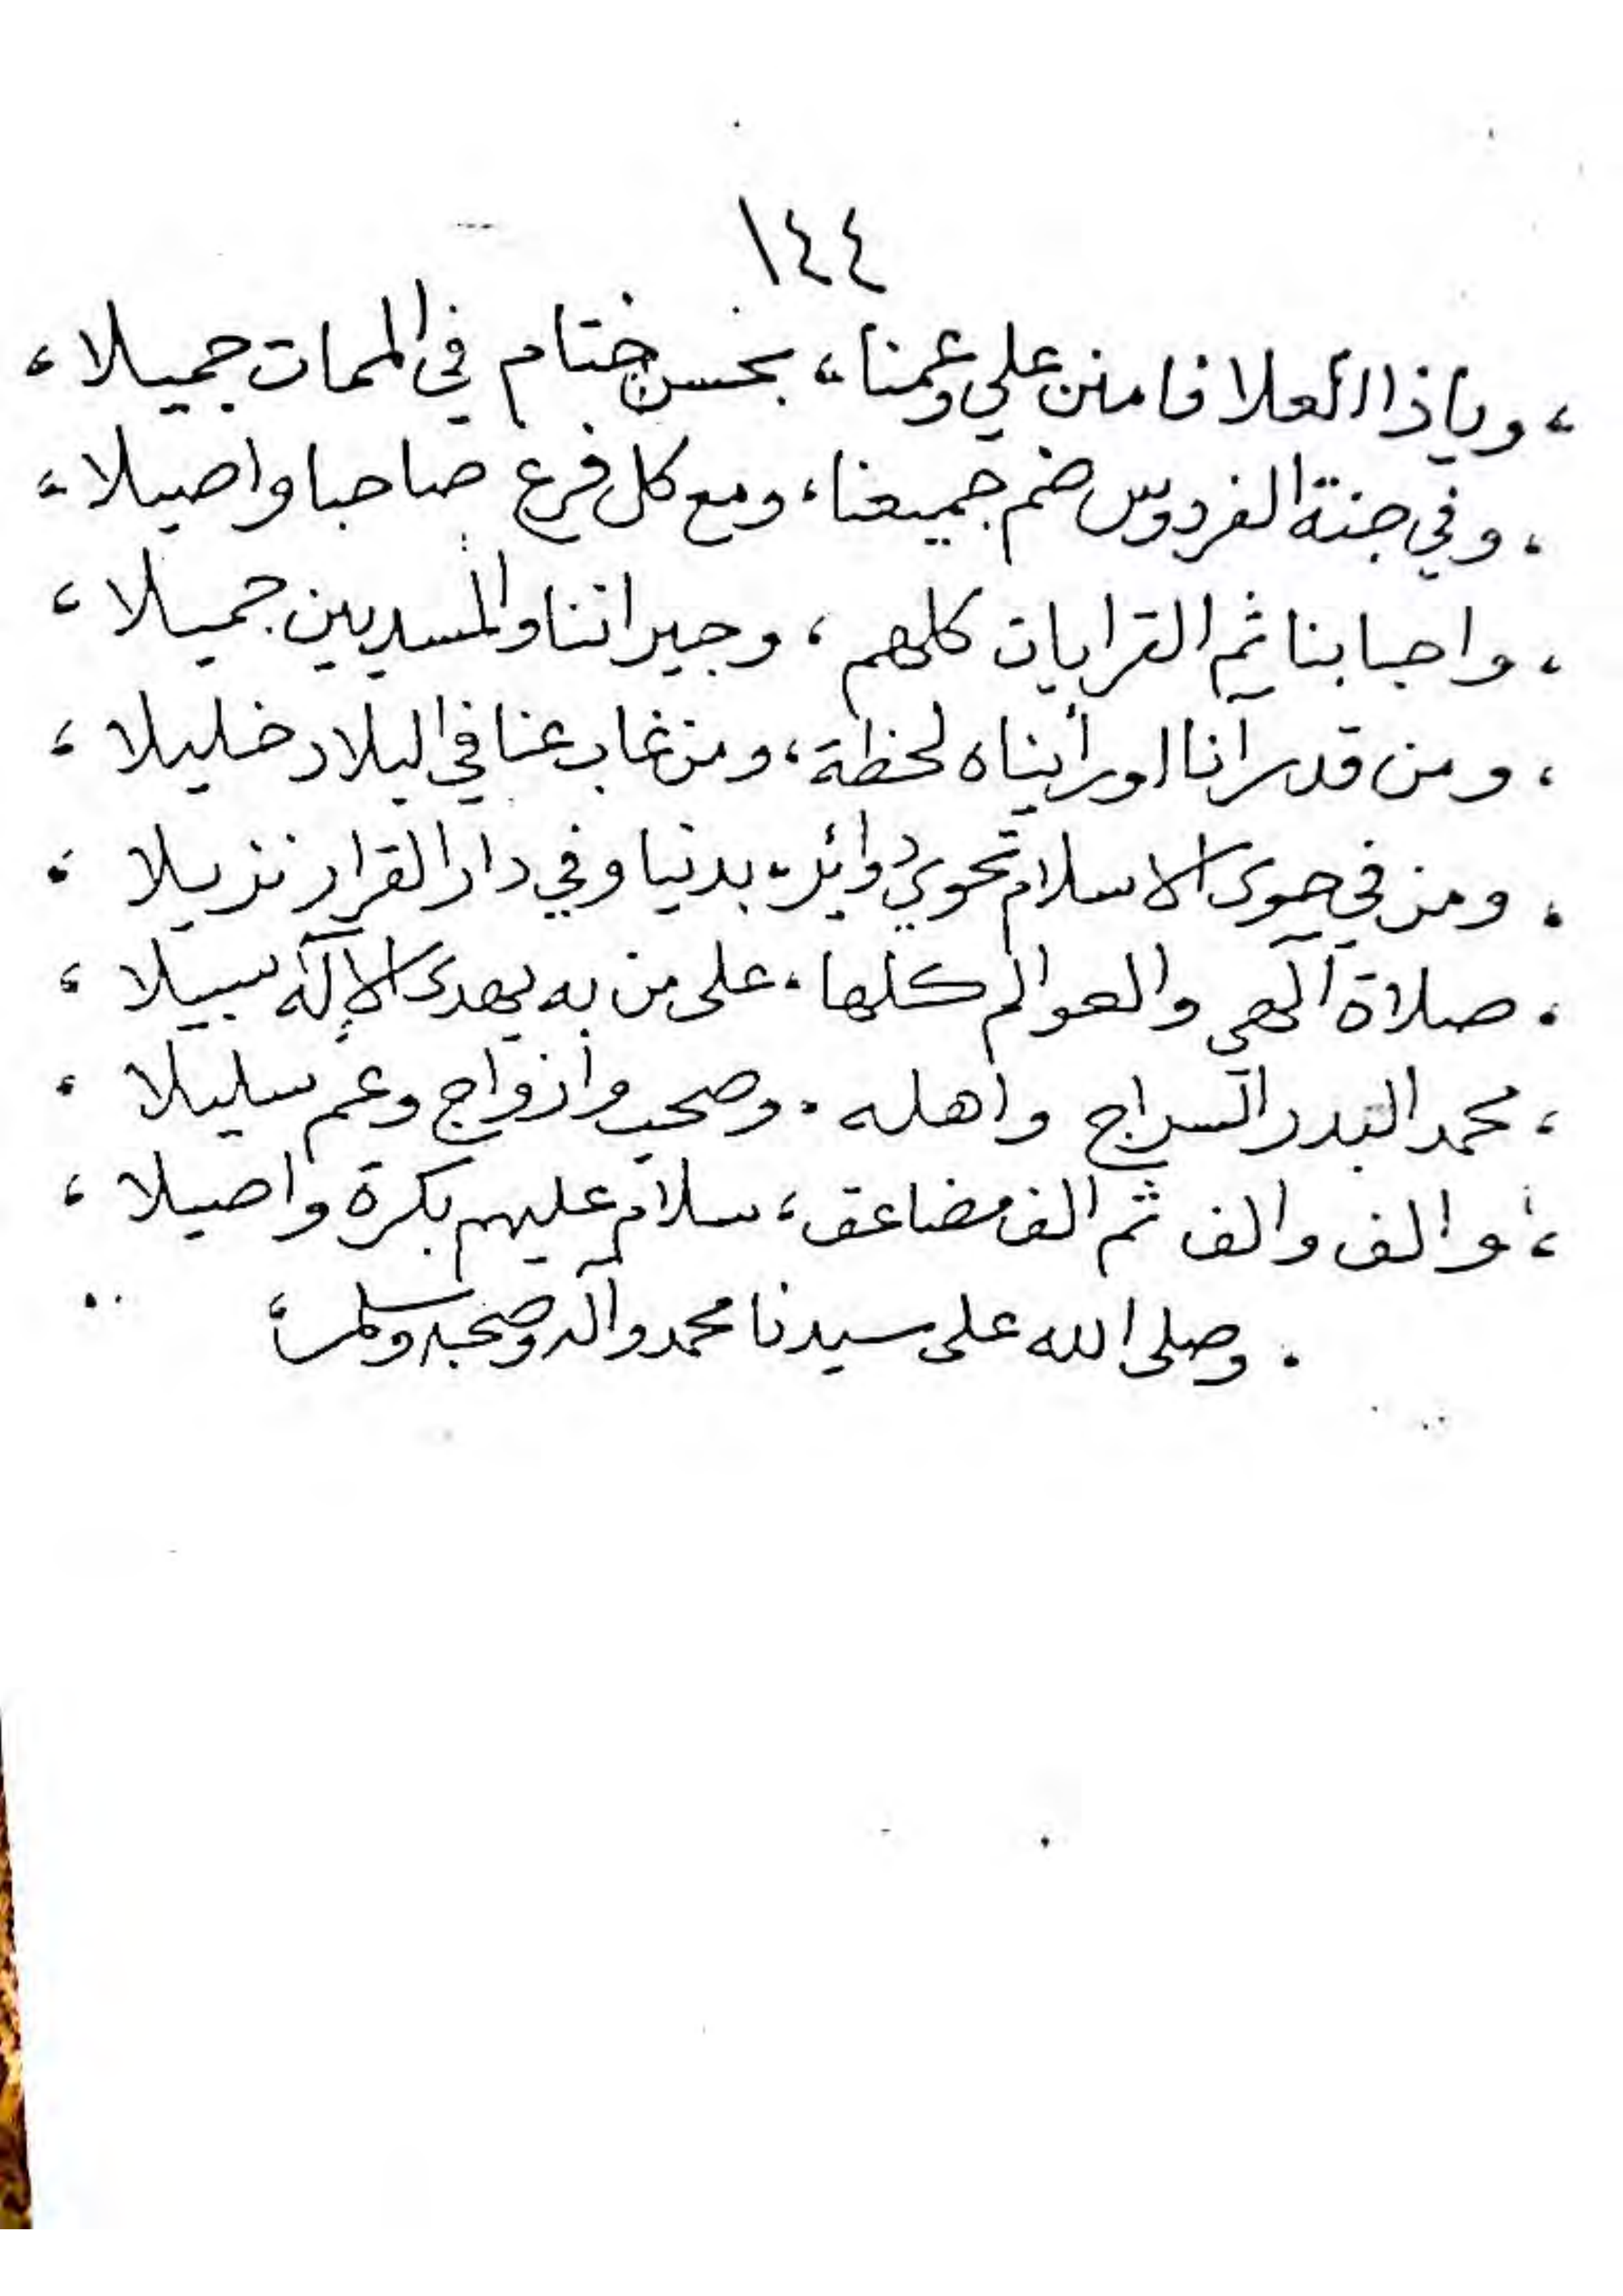 ١٤٤
، وياذا العلا فامنن علي وعمنا ، بحسن ختام في الممات جميلا ،
، وفي جنة الفردوس ضم جميعنا ، ومع كل فرع صاحبا واصيلا ،
، واحبابنا ثم القرابات كلهم ، وجيراننا والمسديين جميلا ،
، ومن قد رآنا او رأيناه لحظة ، ومن غاب عنا في البلاد خليلا ،
. ومن في حوى الاسلام تحوي دوائره . بدنيا وفي دار القرار نزيلا .
. صلاة آلهي والعوالم كلها . على من به يهدى الإله سبيلا ،
، محمد البدر السراج واهله . وصحب وأزواج وعم سليلا .
، والف والف ثم الف مضاعف ، سلام عليهم بكرة واصيلا ،
. وصلى الله على سيدنا محمد وآله وصحبه وسلم ،